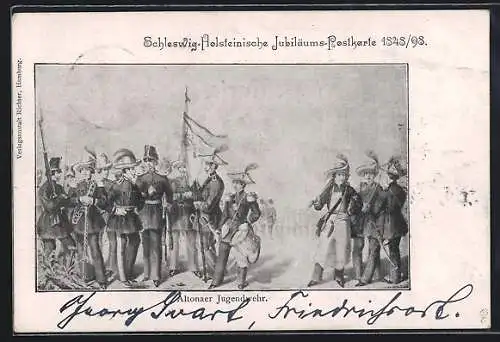 Schleswig-Holsteinische Jubiläums-Postkarte 1848/98.
Verlagsanstalt Richter, Hamburg.
Altonaer Jugendwehr.
Georg Friedrichsort.